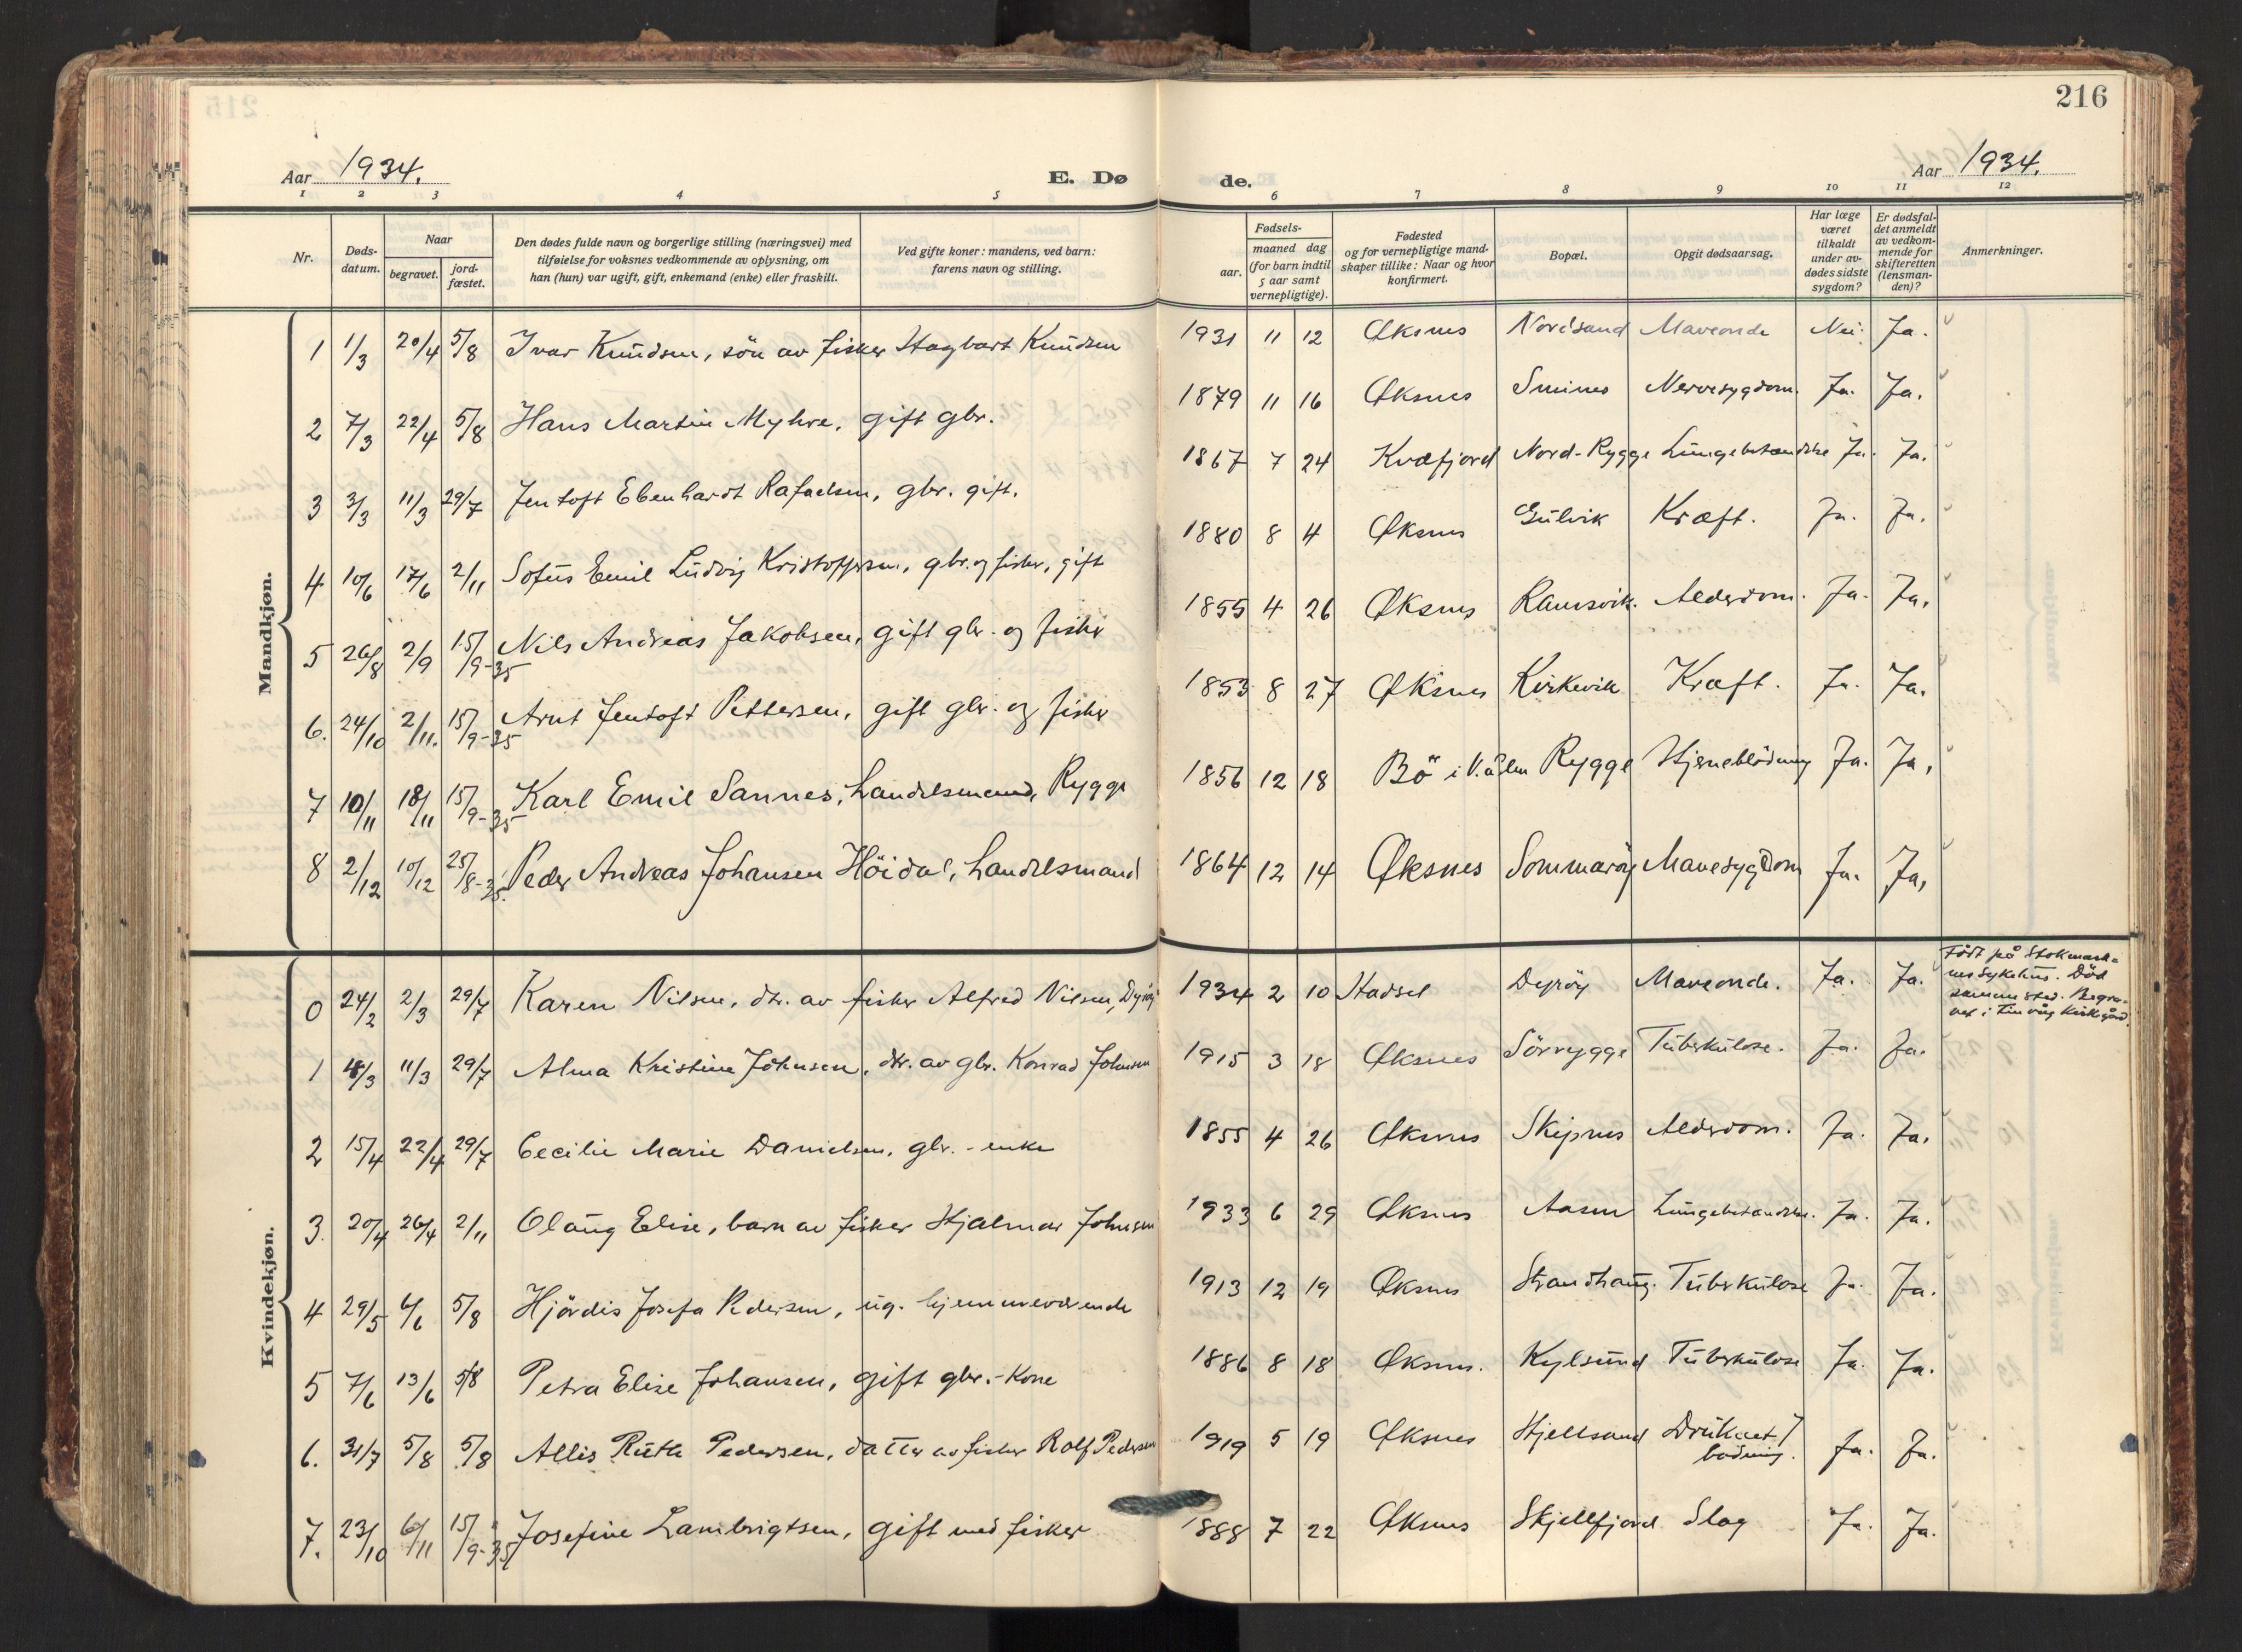 216
Aar 1934.
E. Dø
de.
Aar 1934.
1 2 3 4 5
6 7 8 9 10 11 12
Nr.
Døds-
datum.
Naar
begravet.
jord-
fæstet.
Den dødes fulde navn og borgerlige stilling (næringsvei) med
tilføielse for voksnes vedkommende av oplysning, om
han (hun) var ugift, gift, enkemand (enke) eller fraskilt.
Ved gifte koner: mandens, ved barn:
farens navn og stilling.
Fødsels-
aar.
maaned dag
(for barn indtil
5 aar samt
vernepligtige).
Fødested
og for vernepligtige mand-
skaper tillike: Naar og hvor
konfirmert.
Bopæl.
Opgit dødsaarsag.
Har læge
været
tilkaldt
under av-
dødes sidste
sygdom?
Er dødsfal-
det anmeldt
av vedkom-
mende for
skifteretten
(lensman-
den)?
Anmerkninger.
Mandkjøn.
1 1/3 20/4 5/8 Ivar Knudsen, sön av fisker Hagbart Knudsen 1931 11 12 Øksnes Nordsand Maveonde Nei. Ja.
2 7/3 22/4 5/8 Hans Martin Myhre, gift gbr. 1879 11 16 Øksnes Smines Nervesygdom. Ja. Ja.
3 3/3 11/3 29/7 Jentoft Ebenhardt Rafaelsen, gbr. gift. 1867 7 24 Kvæfjord Nord-Rygge Lungebetændelse Ja. Ja.
4 10/6 17/6 2/11 Sofus Emil Ludvig Kristoffersen, gbr. og fisker, gift 1880 8 4 Øksnes Gulvik Kræft. Ja. Ja.
5 26/8 2/9 15/9-35 Nils Andreas Jakobsen, gift gbr. og fisker 1855 4 26 Øksnes Ramsvik. Alderdom. Ja. Ja.
6. 24/10 2/11. 15/9-35 Arnt Jentoft Pettersen, gift gbr. og fisker 1853 8 27 Øksnes Kirkevik Kræft. Ja. Ja.
7 10/11 18/11 15/9-35 Karl Emil Sannes, handelsmand, Rygge 1856 12 18 Bö i V.ålen Rygge Hjerneblödning Ja. Ja.
8 2/12 10/12 25/8-35. Peder Andreas Johansen Höidal, handelsmand 1864 12 14 Øksnes Sommaröy Mavesygdom Ja. Ja.
Kvindekjøn.
0 24/2 2/3 29/7 Karen Nilsen, dtr. av fisker Alfred Nilsen, Dyröy 1934 2 10 Hadsel Dyröy Maveonde. Ja. Ja. Födt på Stokmark-
nes Sykehus. Död
samme sted. Begra-
vet i Tinvåg Kirkegård.
1 4/3 11/3 29/7 Alma Kristine Johnsen, dtr. av gbr. Konrad Johnsen 1915 3 18 Øksnes Sörrygge Tuberkulose. Ja. Ja.
2 15/4 22/4 29/7 Cecilie Marie Danielsen, gbr.-enke 1855 4 26 Øksnes Skipnes Alderdom. Ja. Ja.
3. 20/4 26/4 2/11 Olaug Elise, barn av fisker Hjalmar Johnsen 1933 6 29 Øksnes Aasen Lungebetændelse. Ja. Ja.
4 29/5 6/6 5/8 Hjördis Josefa Pedersen, ug. hjemmeværende 1913 12 19 Øksnes Strandhaug. Tuberkulose Ja. Ja.
5 7/6 13/6 5/8 Petra Elise Johansen, gift gbr.-Kone 1886 8 18 Øksnes. Kylsund Tuberkulose Ja. Ja.
6. 31/7 5/8 5/8 Allis Ruth Pedersen, datter av fisker Rolf Pedersen 1919 5 19 Øksnes Hjellsand Druknet/
badning. Ja. Ja.
7. 23/10 6/11 15/9-35 Josefine Lambrigtsen, gift med fisker 1888 7 22 Øksnes Skjellfjord Slag Ja. Ja.